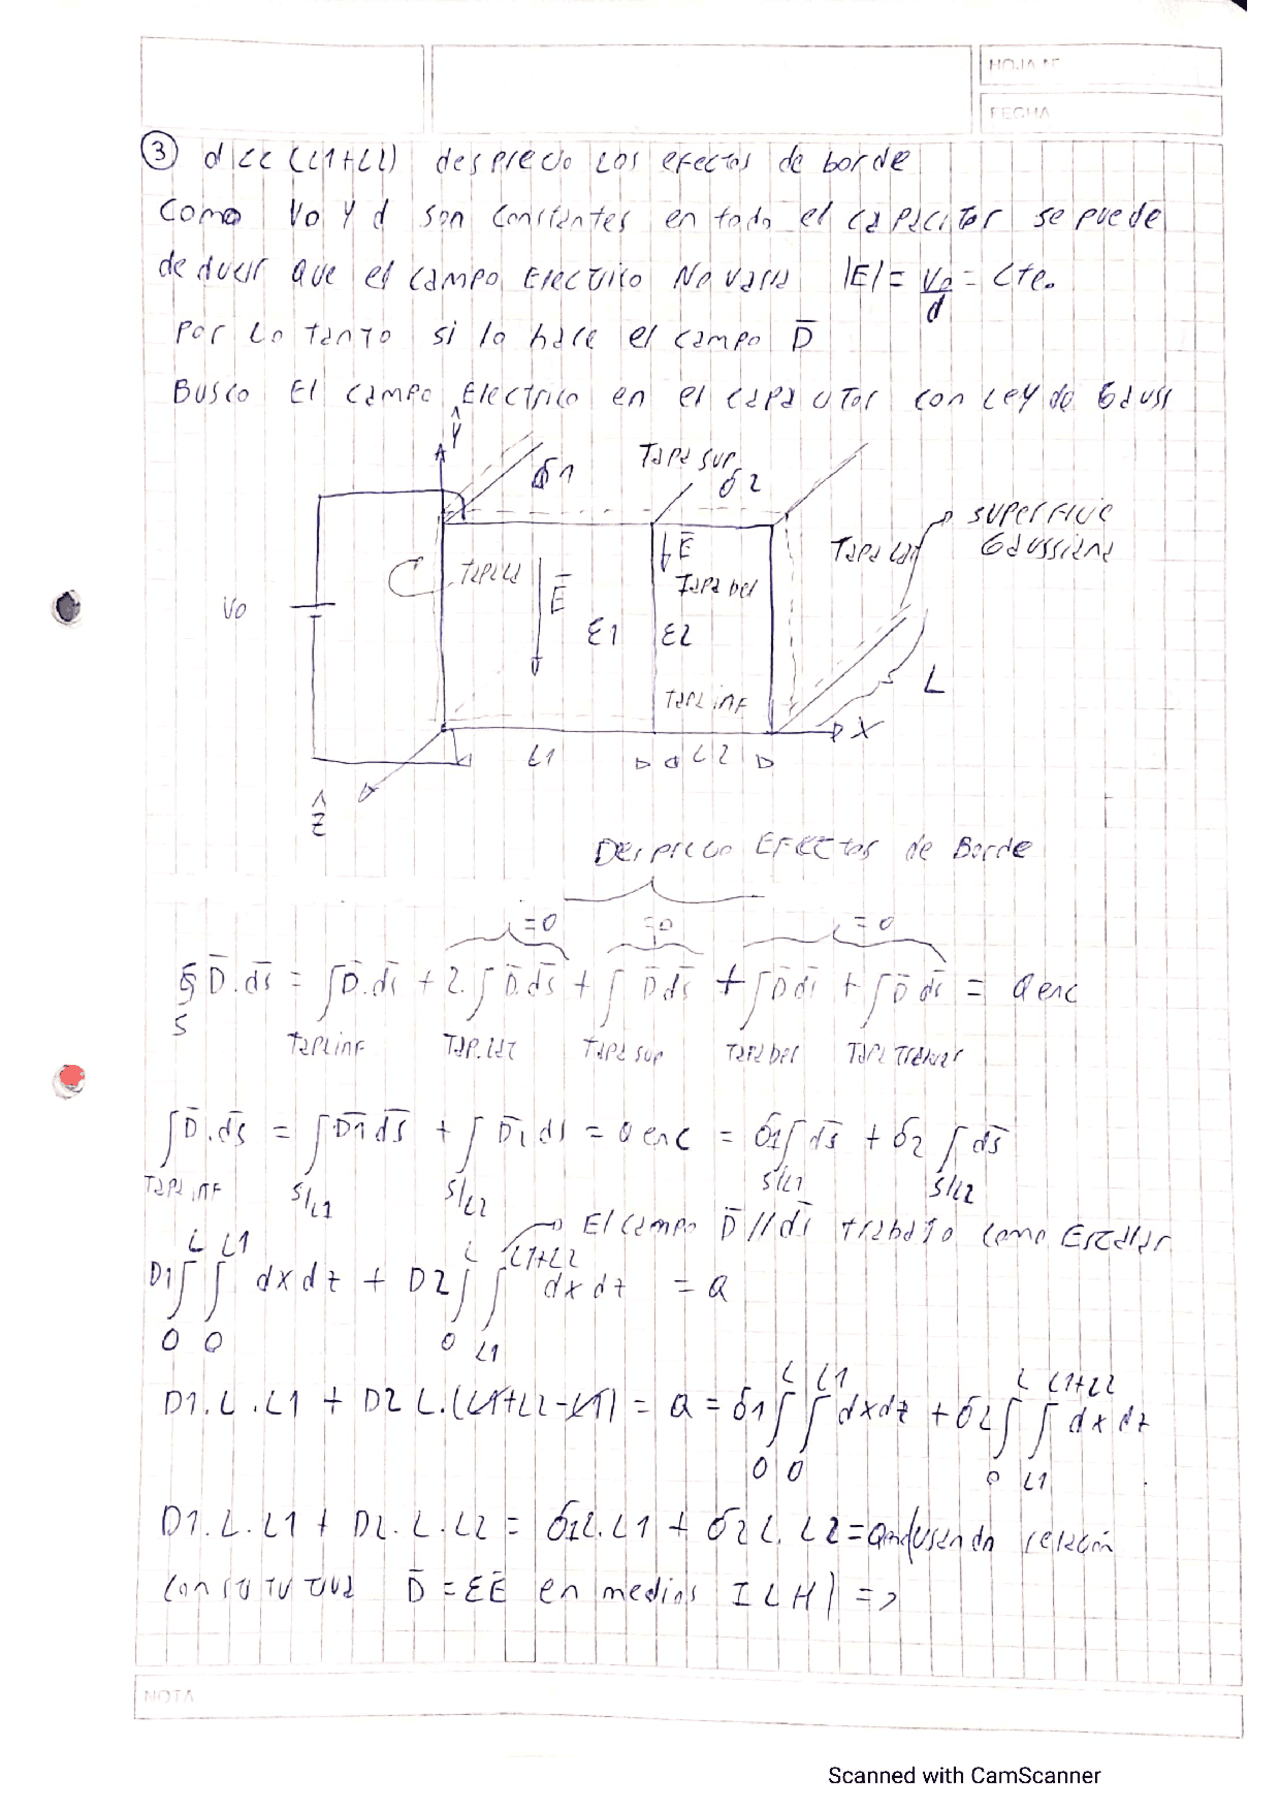 HOJA Nº
FECHA
③ d << (L1+L2) desprecio los efectos de borde
Como Vo y d son constantes en todo el capacitor se puede
deducir que el campo Electrico No varia |E| = Vo/d = Cte.
Por lo tanto si lo hace el campo D̅
Busco El campo Electrico en el capacitor con Ley de Gauss
Ŷ
δ1
Tapa sup
δ2
superficie
Gaussiana
Tapa Lat
E̅
Tapa del
Vo
E̅
ε1
ε2
Tapa inf
L
X
L1
L2
Ẑ
Desprecio Efectos de Borde
=0 =0 =0
∮ D̅.ds̅ = ∫D̅.ds̅ + 2.∫D̅.ds̅ + ∫D̅ds̅ + ∫D̅ds̅ + ∫D̅ ds̅ = Qenc
S Tapa inf Tap.Lat Tapa sup Tapa del Tapa Traser
∫D̅.ds̅ = ∫D̅1 ds̅ + ∫D̅2 ds = Qenc = δ1∫ds̅ + δ2 ∫ds̅
Tapa inf S/L1 S/L2 S/L1 S/L2
El campo D̅//ds̅ trabajo como Escalar
D1∫₀ᴸ∫₀ᴸ¹ dxdz + D2∫₀ᴸ∫_L1^L1+L2 dxdz = Q
D1.L.L1 + D2 L.(L1+L2-L1) = Q = δ1∫₀ᴸ∫₀ᴸ¹ dxdz + δ2∫₀ᴸ∫_L1^L1+L2 dxdz
D1.L.L1 + D2.L.L2 = δ1L.L1 + δ2L.L2 = Qenc (usando relacion
constitutiva D̅ = εE̅ en medios ILH) =>
NOTA
Scanned with CamScanner